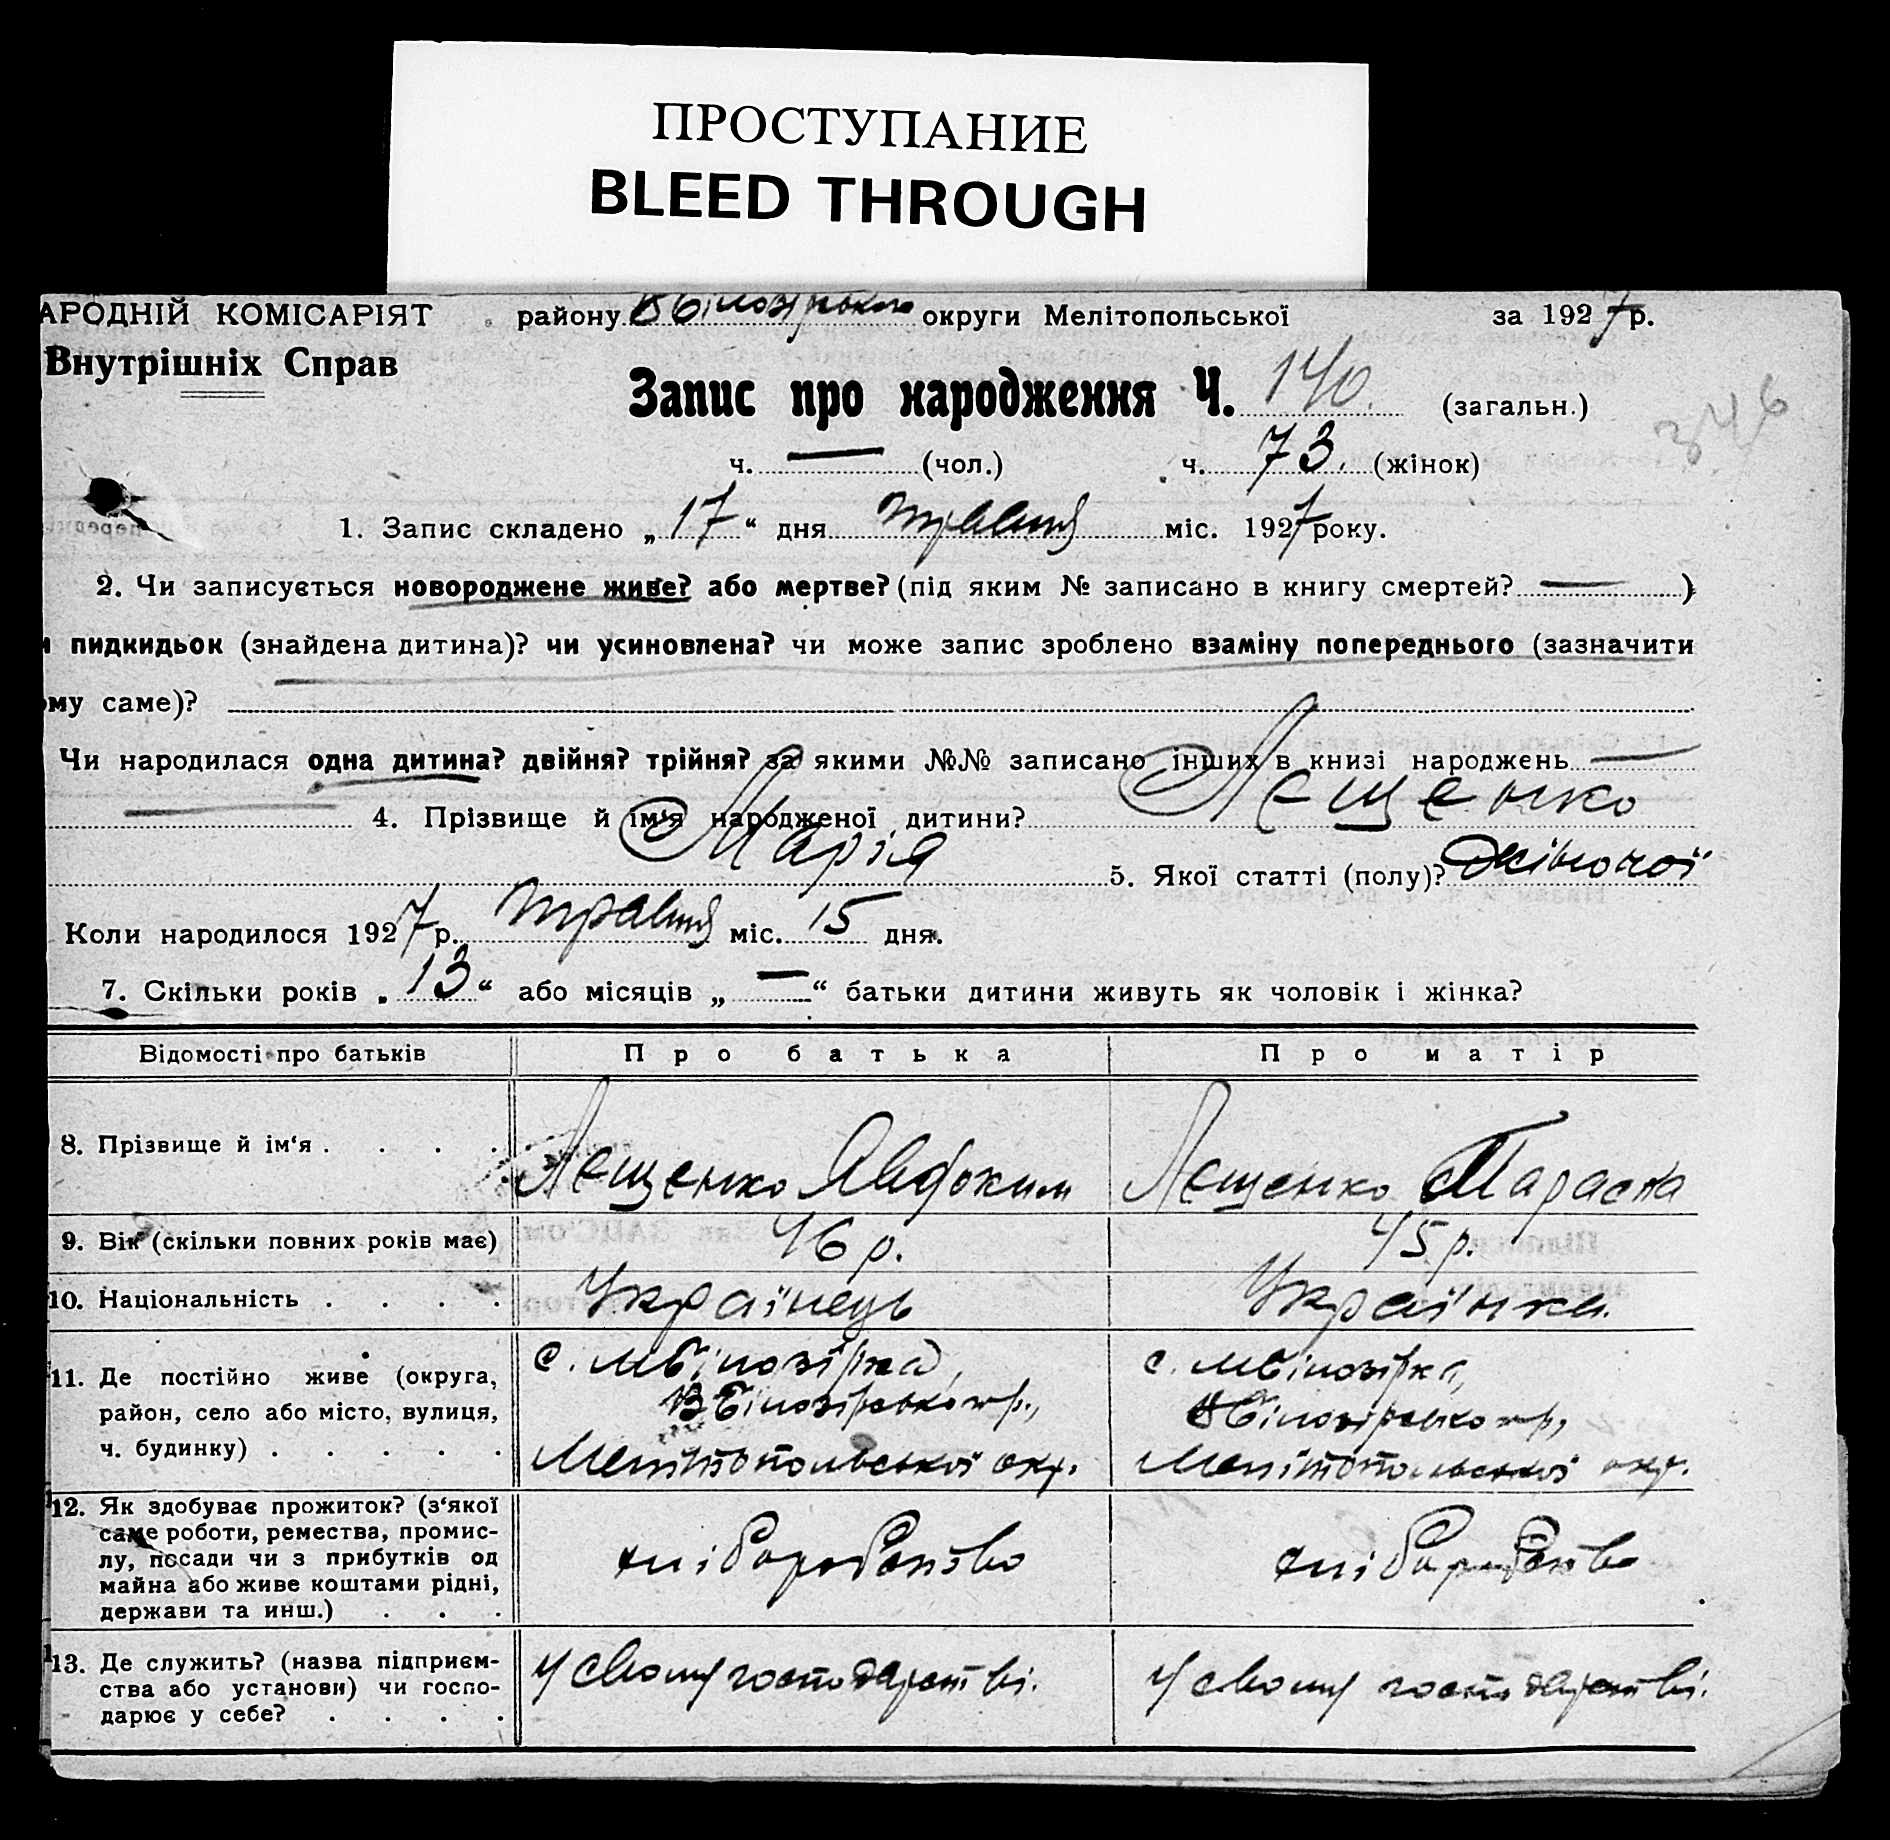 ПРОСТУПАНИЕ
BLEED THROUGH
АРОДНІЙ КОМІСАРІЯТ району В Білозірського округи Мелітопольської за 1927 р.
Внутрішніх Справ
Запис про народження Ч. 140. (загальн.)
346
ч. — (чол.) ч. 73. (жінок)
1. Запис складено „17“ дня травня міс. 1927 року.
2. Чи записується новороджене живе? або мертве? (під яким № записано в книгу смертей? — )
и пидкидьок (знайдена дитина)? чи усиновлена? чи може запис зроблено взаміну попереднього (зазначити
ому саме)?
Чи народилася одна дитина? двійня? трійня? за якими №№ записано інших в книзі народжень —
— 4. Прізвище й ім‘я народженої дитини? Лещенко
Марія 5. Якої статті (полу)? жіночої
Коли народилося 1927 р. травня міс. 15 дня.
7. Скільки років „13“ або місяців „—“ батьки дитини живуть як чоловік і жінка?
Відомості про батьків Про батька Про матір
8. Прізвище й ім‘я . . . . Лещенко Явдоким Лещенко Параска
9. Вік (скільки повних років має) 46 р. 45 р.
10. Національність . . . . Українець Українка.
11. Де постійно живе (округа, с. МБілозірка, с. МБілозірка,
район, село або місто, вулиця, ВБілозірського р., ВБілозірського р.,
ч. будинку) . . . . . Мелітопольської окр. Мелітопольської окр.
12. Як здобуває прожиток? (з‘якої
саме роботи, ремества, промис-
лу, посади чи з прибутків од хліборобство хліборобство
майна або живе коштами рідні,
держави та инш.) . . .
13. Де служить? (назва підприєм- У свому господарстві. У свому господарстві.
ства або установи) чи госпо-
дарює у себе? . . . .